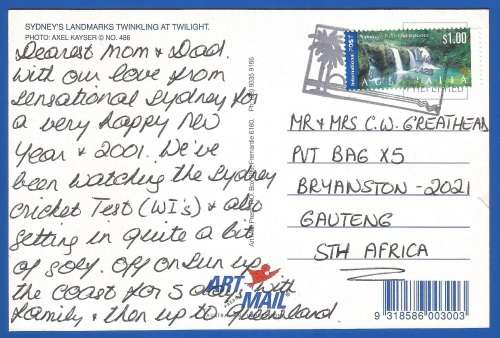 SYDNEY'S LANDMARKS TWINKLING AT TWILIGHT.
PHOTO: AXEL KAYSER © NO. 486
Dearest Mom & Dad.
With our love from
Sensational Sydney for
a very happy New
Year & 2001. We've
been watching the Sydney
Cricket Test (WI's) & also
getting in quite a bit
of golf. Off on Sun up
the coast for 5 days with
family & then up to Queensland
$1.00
AUSTRALIA
MR & MRS C.W. GREATHEAD
PVT BAG X5
BRYANSTON - 2021
GAUTENG
STH AFRICA
ART
MAIL
9 318586 003003